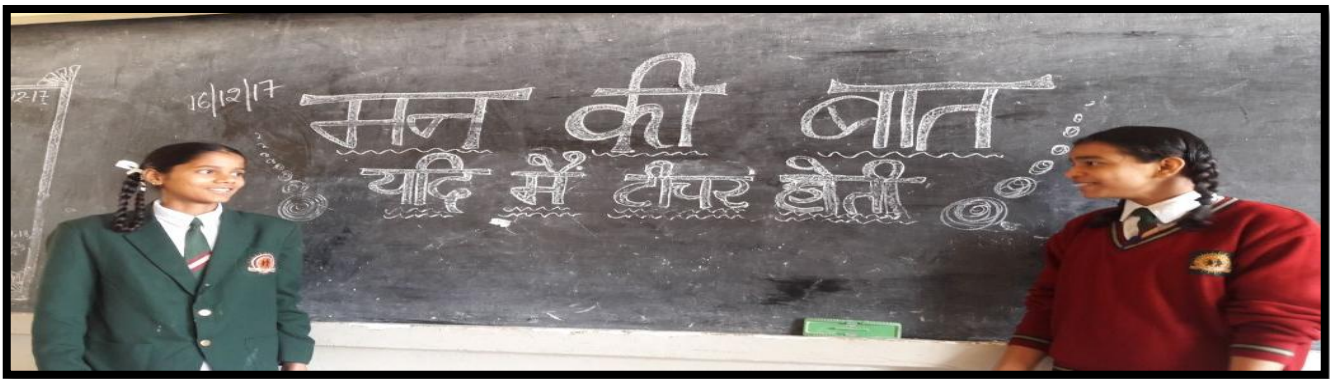 16/12/17
मन की बात
यदि मैं टीचर होती